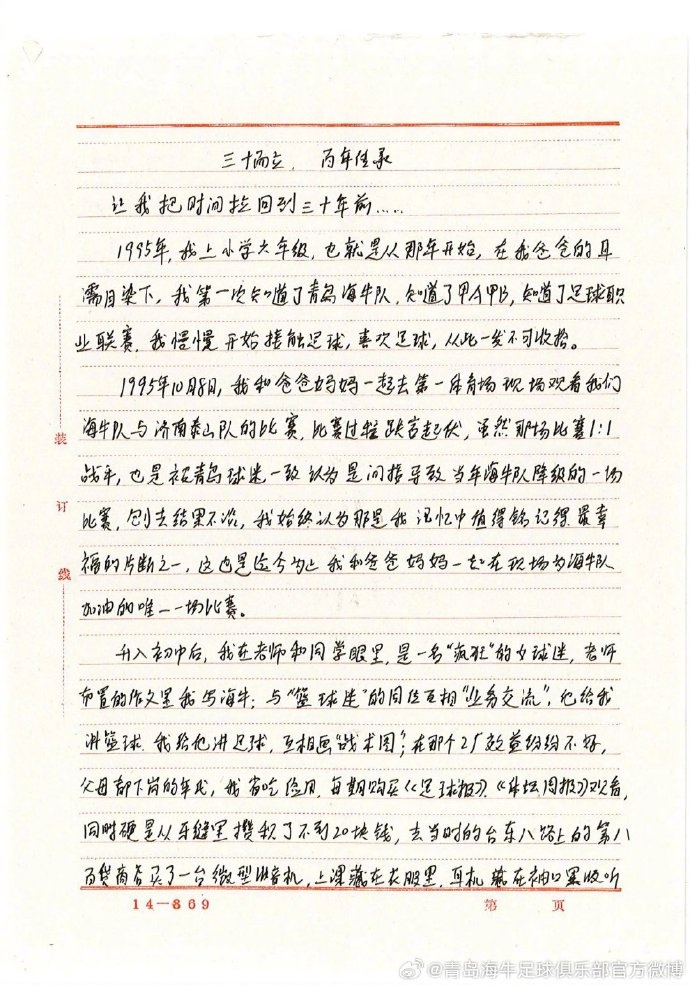 三十而立，百年传承
让我把时间拉回到三十年前……
1995年，我上小学六年级，也就是从那年开始，在我爸爸的耳
濡目染下，我第一次知道了青岛海牛队，知道了甲A甲B，知道了足球职
业联赛，我慢慢开始接触足球，喜欢足球，从此一发不可收拾。
1995年10月8日，我和爸爸妈妈一起去第一体育场现场观看我们
海牛队与济南泰山队的比赛，比赛过程跌宕起伏，虽然那场比赛1:1
战平，也是被青岛球迷一致认为是间接导致当年海牛队降级的一场
比赛，刨去结果不论，我始终认为那是我记忆中值得铭记得最幸
福的片断之一，这也是迄今为止我和爸爸妈妈一起在现场为海牛队
加油的唯一一场比赛。
升入初中后，我在老师和同学眼里，是一名“疯狂”的女球迷，老师
布置的作文里我写海牛；与“篮球迷”的同位互相“业务交流”，他给我
讲篮球，我给他讲足球，互相画“战术图”；在那个工厂效益纷纷不好，
父母都下岗的年代，我省吃俭用，每期购买《足球报》、《体坛周报》观看，
同时硬是从牙缝里攒积了不到20块钱，去当时的台东八路上的第八
百货商店买了一台微型收音机，上课藏在衣服里，耳机藏在袖口里收听
装
订
线
14—869
第 页
@青岛海牛足球俱乐部官方微博